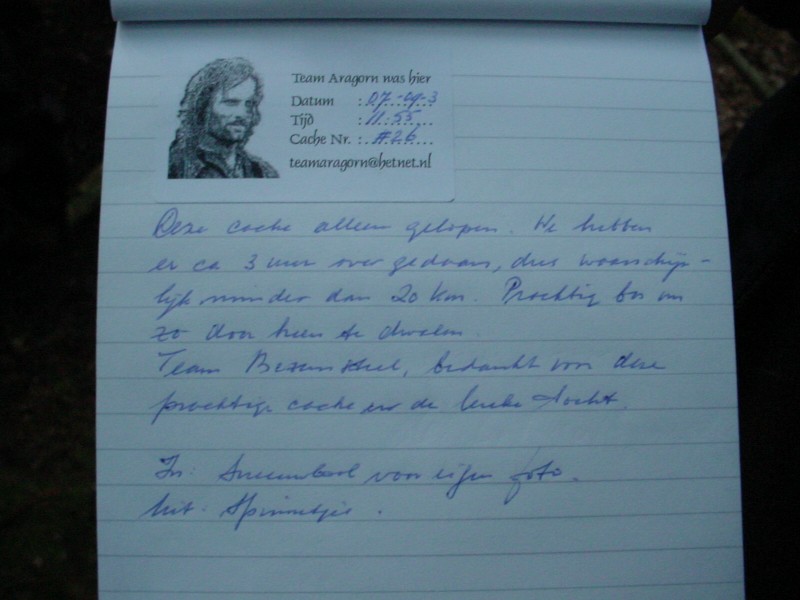 Team Aragorn was hier
Datum : 07-09-3
Tijd : 11.55
Cache Nr. : #26
teamaragorn@hetnet.nl
Deze cache alleen gelopen. We hebben
er ca 3 uur over gedaan, dus waarschijn-
lijk minder dan 20 km. Prachtig bos om
zo door heen te dwalen.
Team Bezemsteel, bedankt voor deze
prachtige cache en de leuke tocht.
In: Sneeuwbol voor eigen foto.
Uit: Spinnetje.